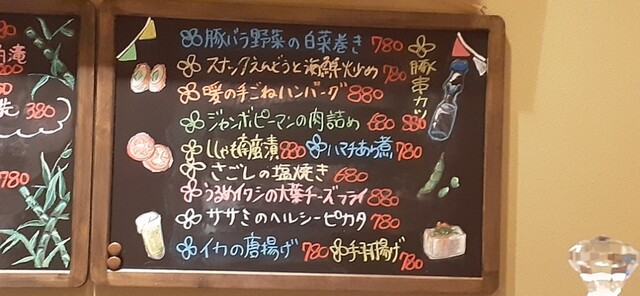 豚バラ野菜の白菜巻き 780
スナックえんどうと海鮮炒め 780
豚串カツ 880
暖の手ごねハンバーグ 880
ジャンボピーマンの肉詰め 680
ししゃも南蛮漬 880 ハマチあら煮 780
さごしの塩焼き 680
うるめイワシの大葉チーズフライ 880
ササミのヘルシーピカタ 780
イカの唐揚げ 780 手羽揚げ 780
380
780